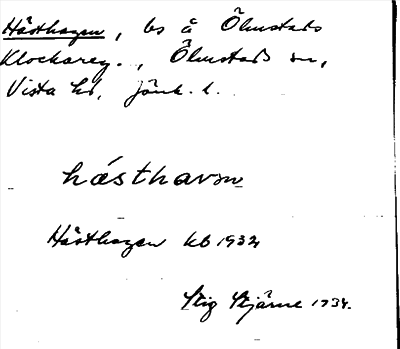 Hästhagen, ls å Ölmstads
Klockareg., Ölmstads sn,
Vista hd, Jönk. l.
hásthavɷn
Hästhagen kb 1932
Stig Stjärne 1934.